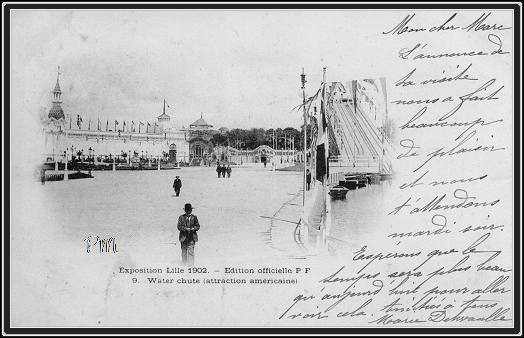 Mon cher Marc
L'annonce de
ta visite
nous a fait
beaucoup
de plaisir
et nous
t'attendons
mardi soir.
Espérons que le
temps sera plus beau
qu'aujourd'hui pour aller
voir cela. à tous
Marie
PM
Exposition Lille 1902. - Edition officielle P F
9. Water chute (attraction américaine)